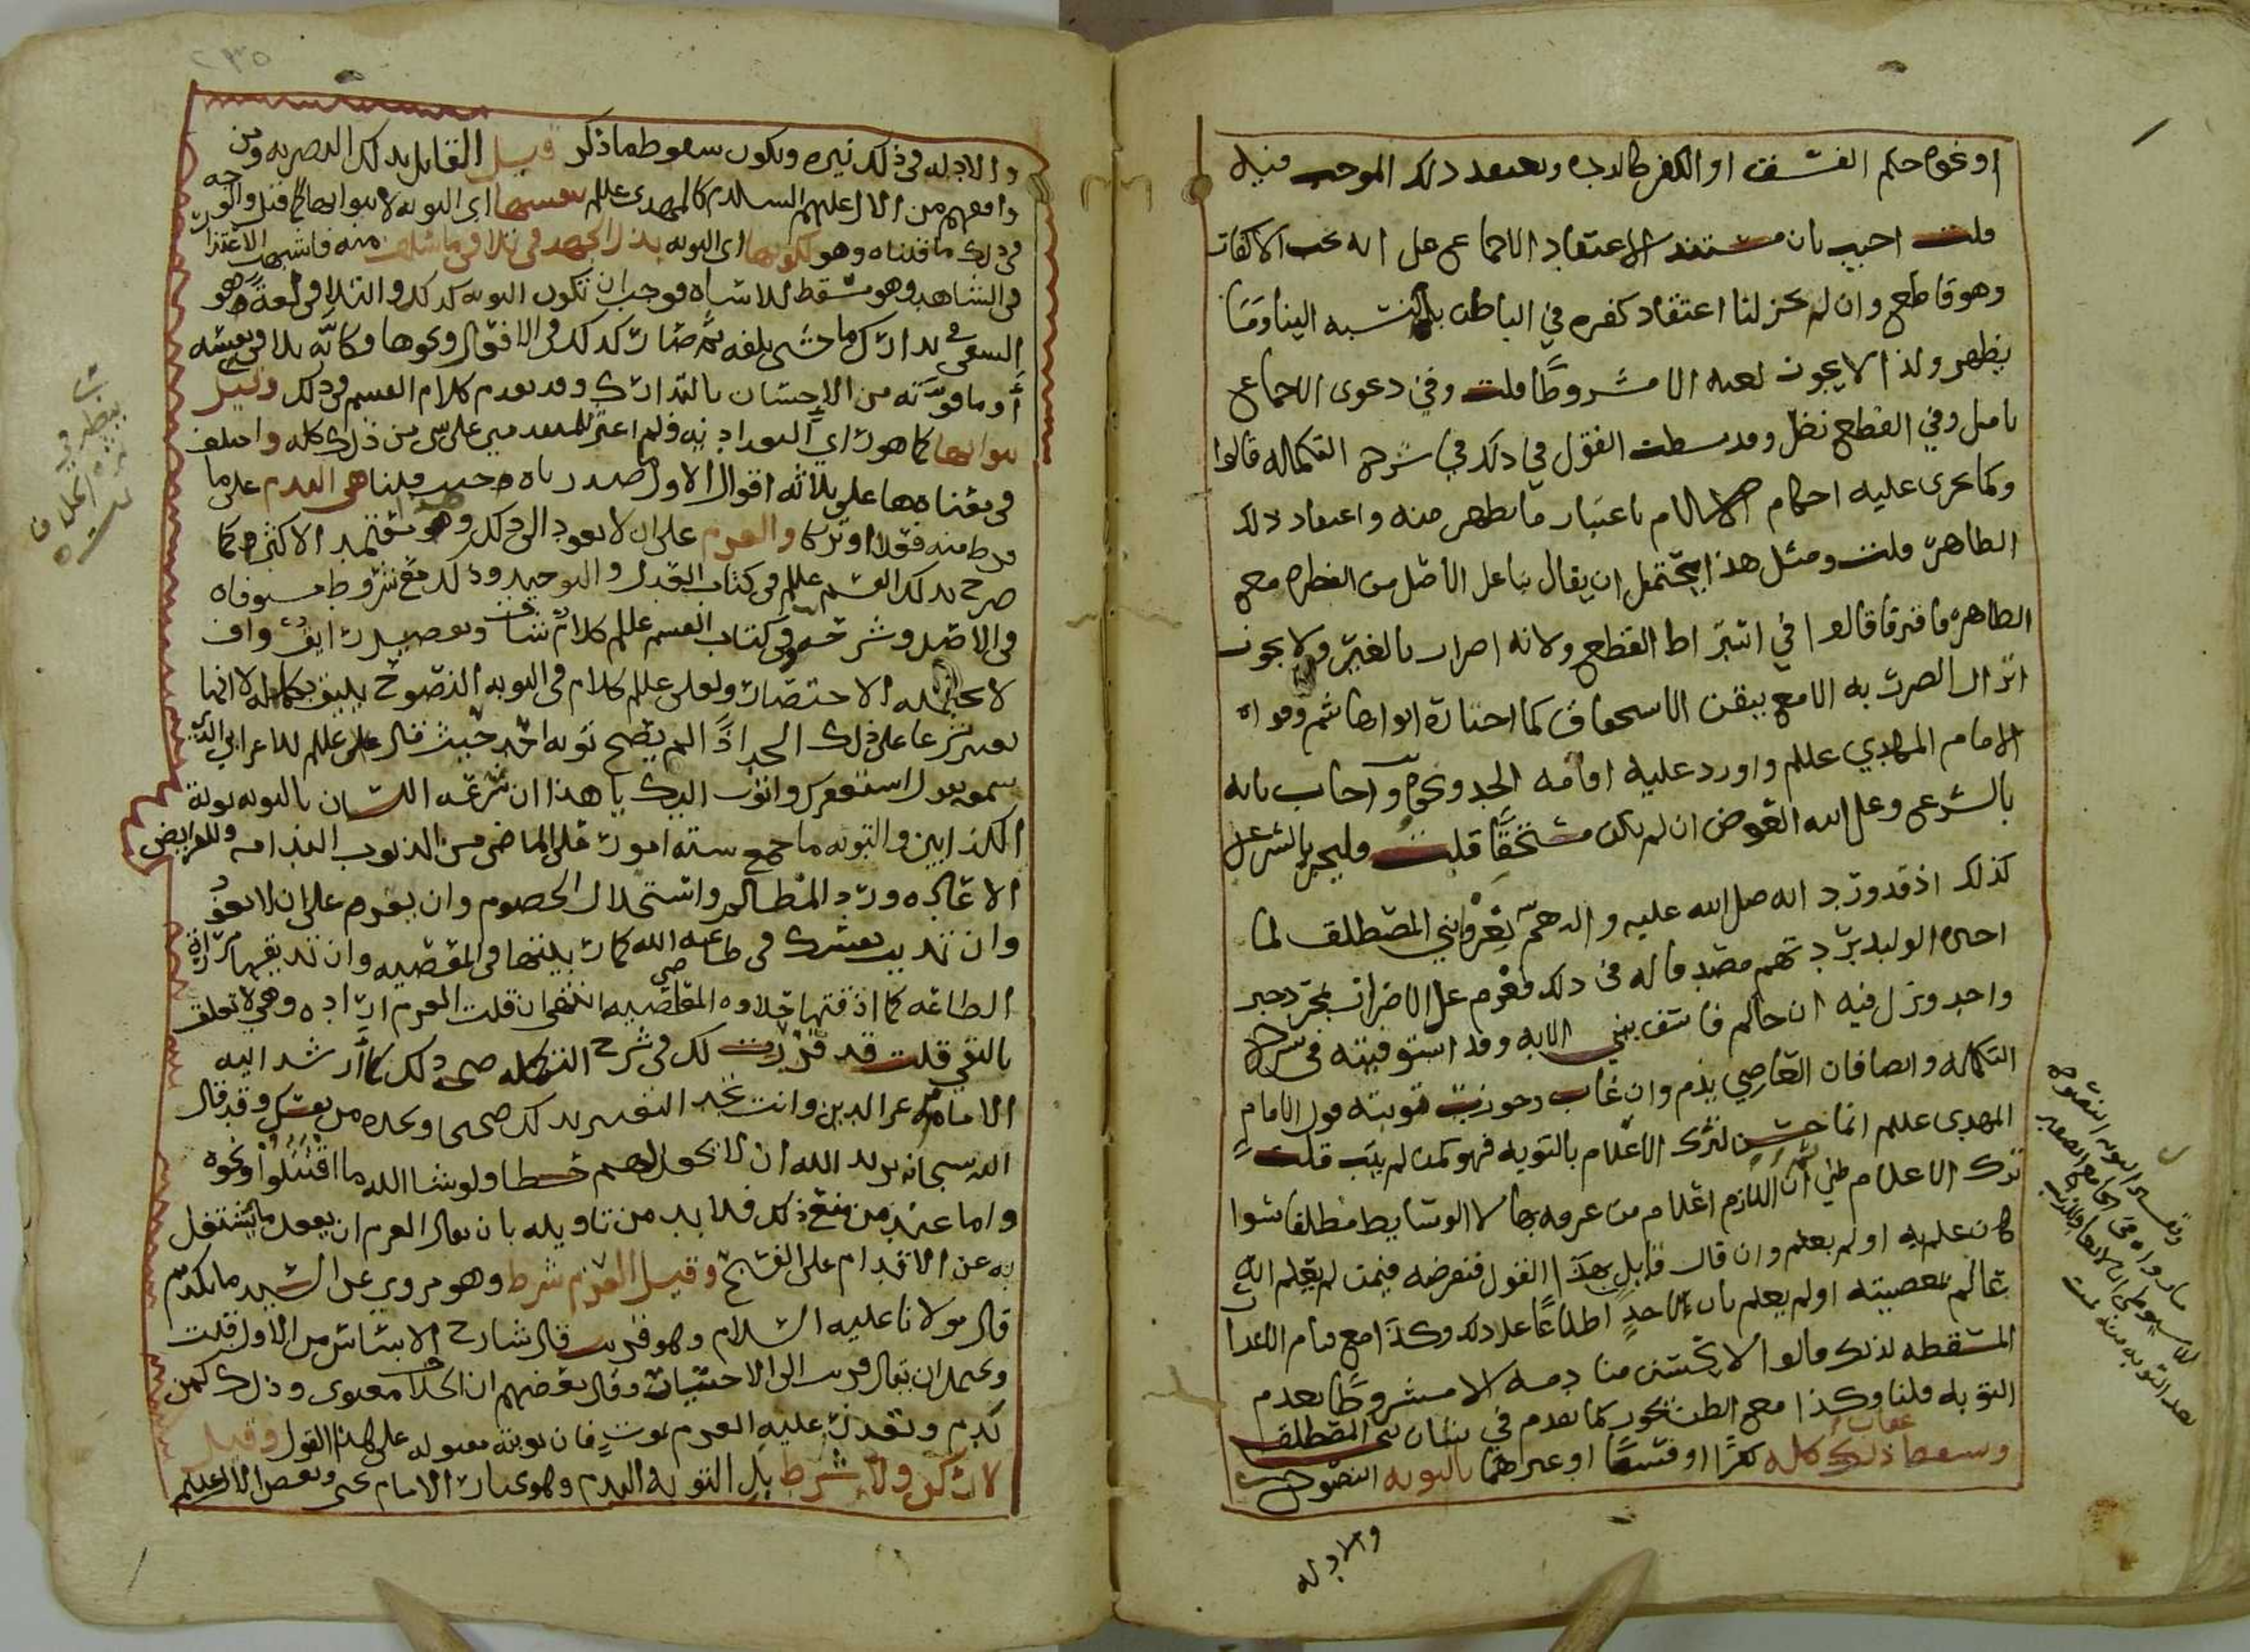 او نحوه حكم الفسق او الكفر كالردة ونعتقد ذلك الموجب فيه
قلت اجيب بان مستند الاعتقاد الاجماع على انه يجب الاكفار
وهو قاطع وان لم يجز لنا اعتقاد كفره في الباطن بالنسبه الينا
يظهر ولذا لا يجوز لعنه الا مشروطا قلت وفي دعوى الاجماع
تامل وفي القطع نظر وقد بسطت القول في ذلك في شرح التكمله قالوا
وكما تجرى عليه احكام الاسلام باعتبار ما يظهر منه واعتقاد ذلك
الظاهر قلت ومثل هذا يحتمل ان يقال بناء على الاصل من الفطره مع
الظاهر فافترقا قالوا في اشتراط القطع ولانه اضرار بالغير ولا يجوز
انزال الضرر به الا مع تيقن الاستحقاق كما اختاره ابو هاشم وقواه
الامام المهدي عللم واورد عليه اقامه الحد ونحوه واجاب بانه
بالشرع وعلى الله العوض ان لم يكن مستحقا قلت وليجز بالشرع
كذلك اذ قد ورد انه صلى الله عليه واله هم بغزو بني المصطلق لما
اخبره الوليد بردتهم فصدقه في ذلك فعزم على الاضرار بمجرد خبر
واحد ونزل فيه ان جاكم فاسق بنبا الايه وقد استوفيته في شرح
التكمله وايضا فان العاصي يذم وان غاب وجوزت توبته قول الامام
المهدى عللم انما حسن لترك الاعلام بالتوبه فهو كمن لم يتب قلت
ترك الاعلام ظني اذ اللازم اعلام من عرفه بها لا الوسايط مطلقا سوا
كان علم به او لم يعلم وان قال قايل بهذا القول فنفرضه فيمن لم يعلم انه
عالم بمعصيته او لم يعلم بان لاحد اطلاعا على ذلك وكذا مع قيام الاعذار
المسقطه لذلك قالوا لا يحسن منا ذمه الا مشروطا بعدم
التوبه قلنا وكذا مع الظن يجوز كما تقدم في شان بني المصطلق
ويسقط عقاب ذلك كله كفرا او فسقا او غيرهما بالتوبه النصوح
والادله
وتفسير التوبه النصوح
ما رواه في الجامع الصغير
للاسيوطي ان لا يعاود الذنب
بعد التوبه منه تمت
والادله في ذلك نيره ويكون سقوط ما ذكر قيل القايل بذلك البصريه ومن
وافقهم من الال عليهم السلام كالمهدى عللم بنفسها اى التوبه لا بثوابها كما قيل والوجه
في ذلك ما قلناه وهو لكونها اى التوبه بذل الجهد في تلافي ما سلف منه فاشبهت الاعتذار
في الشاهد وهو مسقط للاساه فوجب ان تكون التوبه كذلك والتلافي لغة هو
السعي في تدارك ما خشى تلفه ثم صار كذلك في الاقوال ونحوها وكانه تلافى نفسه
او ما فوته من الاحسان بالتدارك وقد تقدم كلام القسم في ذلك وقيل
بثوابها كما هو راي البغداديه ولم اعثر للمتقدمين على شي من ذلك كله واختلف
في معناها على ثلاثه اقوال الاول صدرناه حيث قلنا هى الندم على ما
فرط منه فعلا او تركا والعزم على ان لا يعود الى ذلك وهو معتمد الاكثر كما
صرح بذلك القسم عللم في كتاب العدل والتوحيد وذلك مع شروط مستوفاه
في الاصل وشرحه وفي كتاب القسم عللم كلام شاف وتفصيل رايق واف
لا يحتمله الاختصار ولعلى عللم كلام في التوبه النصوح يليق بكماله لا انها
تعتبر شرعا على ذلك الحد اذ لم يصح توبه احد حيث قال على عللم للاعرابي الذي
سمعه يقول استغفرك واتوب اليك يا هذا ان سرعه اللسان بالتوبه توبة
الكذابين والتوبه ما جمع سته امور على الماضى من الذنوب الندامه وللفرايض
الاعاده ورد المظالم واستحلال الخصوم وان يعزم على ان لا يعود
وان تذيب نفسك في طاعه الله كما ربيتها في المعصيه وان تذيقها مرارة
الطاعه كما اذقتها حلاوه المعاصي انتهى ان قلت العزم اراده وهي لا تعلق
بالنفي قلت قد قررت لك في شرح التكمله صحه ذلك كما ارشد اليه
الامام عز الدين وانت تجد النفس بذلك صحيحا وتجده من نفسك وقد قال
الله سبحانه يريد الله ان لا يجعل لهم حظا ولو شا الله ما اقتتلوا ونحوه
واما عند من منع ذلك فلا بد من تاويله بان يقال العزم ان يفعل ما يشتغل
به عن الاقدام على القبيح وقيل العزم شرط وهو مروي عن السيد مانكديم
قال مولانا عليه السلام وهو قريب قال شارح الاساس من الاول قلت
ويحتمل ان يقال قريب الى الاحتياط وقال بعضهم ان الخلاف معنوى وذلك كمن
ندم وتعذر عليه العزم لموت فان توبته مقبوله على هذا القول وقيل
لا ركن ولا شرط بل التوبه الندم وهو مختار الامام يحيى وبعض الال عليهم
ينظر في